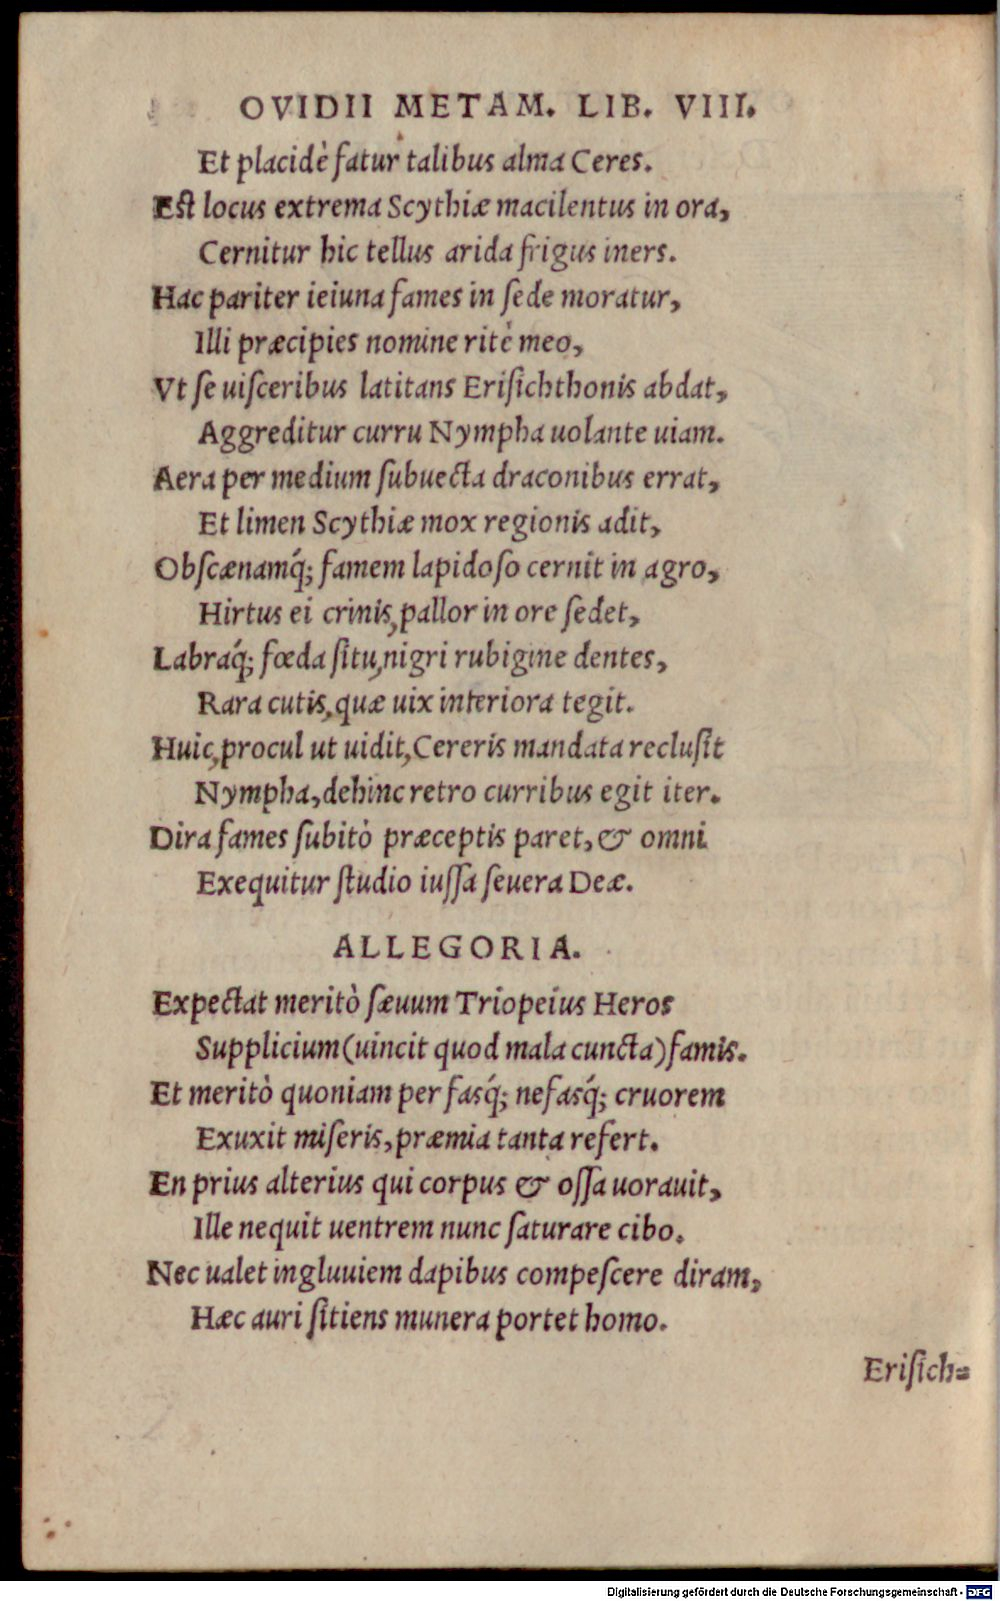 OVIDII METAM. LIB. VIII.
Et placidè fatur talibus alma Ceres.
Est locus extrema Scythiæ macilentus in ora,
Cernitur hic tellus arida frigus iners.
Hac pariter ieiuna fames in ſede moratur,
Illi præcipies nomine ritè meo,
Vt ſe uiſceribus latitans Eriſichthonis abdat,
Aggreditur curru Nympha uolante uiam.
Aera per medium ſubuecta draconibus errat,
Et limen Scythiæ mox regionis adit,
Obſcænamq́; famem lapidoſo cernit in agro,
Hirtus ei crinis, pallor in ore ſedet,
Labraq́; fœda ſitu, nigri rubigine dentes,
Rara cutis, quæ uix interiora tegit.
Huic, procul ut uidit, Cereris mandata recluſit
Nympha, dehinc retro curribus egit iter.
Dira fames ſubitò præceptis paret, & omni
Exequitur ſtudio iuſſa ſeuera Deæ.
ALLEGORIA.
Expectat meritò ſæuum Triopeius Heros
Supplicium (uincit quod mala cuncta) famis.
Et meritò quoniam per fasq́; nefasq́; cruorem
Exuxit miſeris, præmia tanta refert.
En prius alterius qui corpus & oſſa uorauit,
Ille nequit uentrem nunc ſaturare cibo.
Nec ualet ingluuiem dapibus compeſcere diram,
Hæc auri ſitiens munera portet homo.
Eriſich=
Digitalisierung gefördert durch die Deutsche Forschungsgemeinschaft - DFG